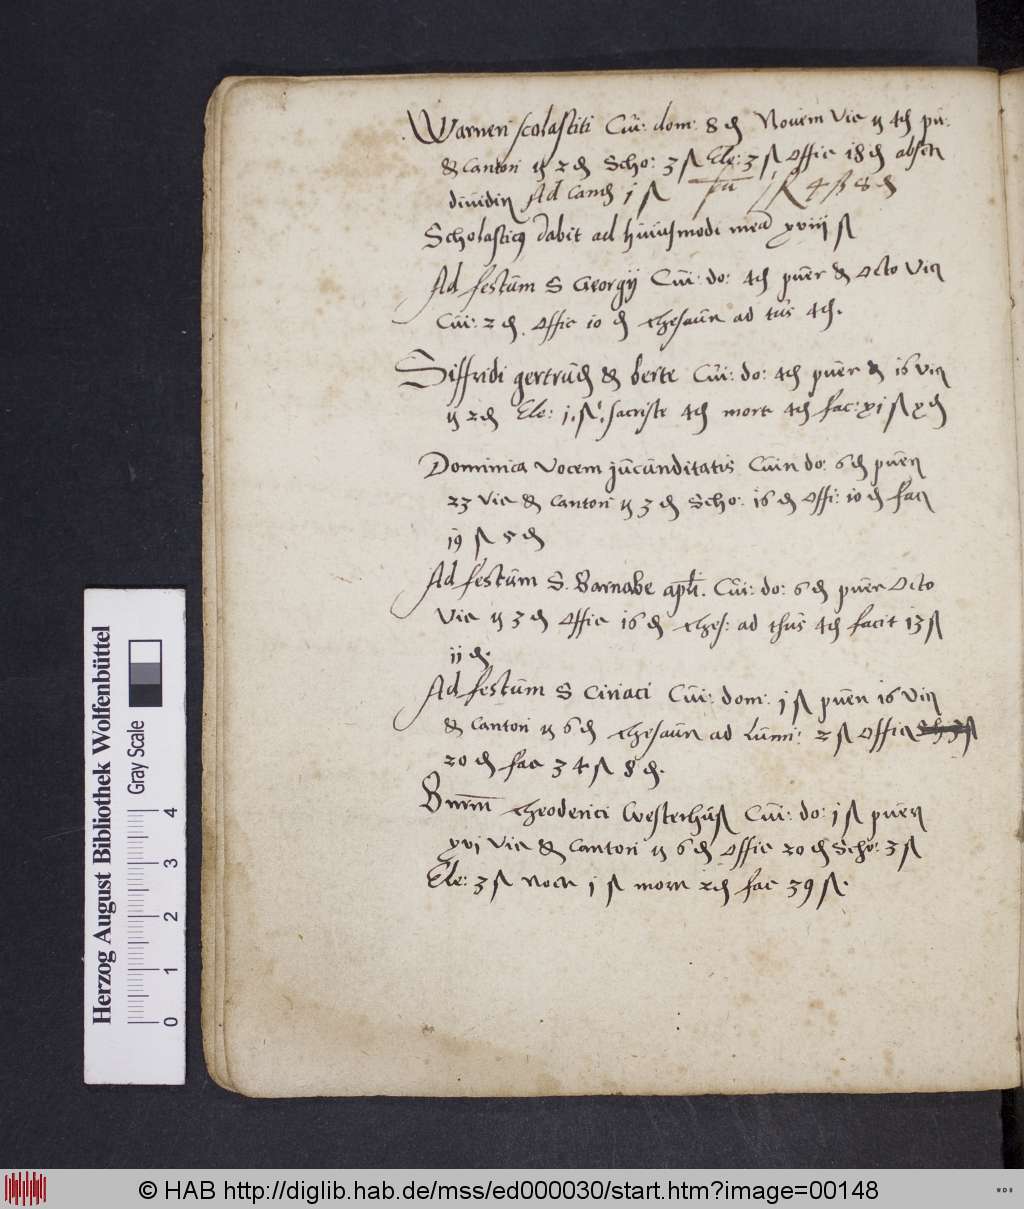 Warneri scolastici Cui: dom: 8 ₰ Novem Vic ij 4₰ pu:
& Cantori ij 2 ₰ Scho: 3 ß Ele: 3 ß Offic 18 ₰ absen
dividin Ad Cam₰ j ß 4 ß 8 ₰
Scholasticus dabit ad huiusmodi mea xviij ß
Ad festum S Georgij Cui: do: 4₰ puer & Octo Vic
Cui: 2 ₰. Offic 10 ₰ thesaur ad tus 4₰.
Siffridi gertrud & berte Cui: do: 4₰ puer & 16 Vic
ij 2₰ Ele: j. ß. sacriste 4₰ morte 4₰ fac: xj ß x₰
Dominica Vocem jucunditatis Cuin do: 6₰ puer
23 Vic & Cantori ij 3 ₰ Scho: 16 ₰ Offi: 10 ₰ fac
19 ß 5 ₰
Ad festum S. Barnabe apli. Cui: do: 6 ₰ puer Octo
Vic ij 3 ₰ Offic 16 ₰ thes: ad thus 4₰ facit 13 ß
ij ₰.
Ad festum S Ciriaci Cui: dom: j ß puen 16 Vic
& Cantori ij 6 ₰ thesaur ad Lumi: 2 ß Offic
20 ₰ fac 34 ß 8 ₰.
theoderici Westerhuß Cui: do: j ß puer
xvj Vic & Cantori ij 6 ₰ Offic 20 ₰ Scho: 3 ß
Ele: 3 ß Noct j ß morn 2₰ fac 39 ß.
Herzog August Bibliothek Wolfenbüttel
Gray Scale
0 1 2 3 4
© HAB http://diglib.hab.de/mss/ed000030/start.htm?image=00148